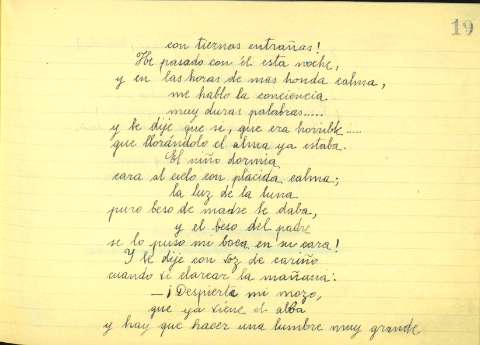 19
con tiernas entrañas!
He pasado con él esta noche,
y en las horas de mas honda calma,
me habló la conciencia
muy duras palabras.....
y le dije que si, que era horrible.....
que llorándolo el alma ya estaba.
El niño dormia
cara al cielo con plácida calma;
la luz de la luna
puro beso de madre le daba,
y el beso del padre
se lo puso mi boca en su cara!
Y le dije con voz de cariño
cuando vi clarear la mañana:
—¡Despierta mi mozo,
que ya viene el alba
y hay que hacer una lumbre muy grande